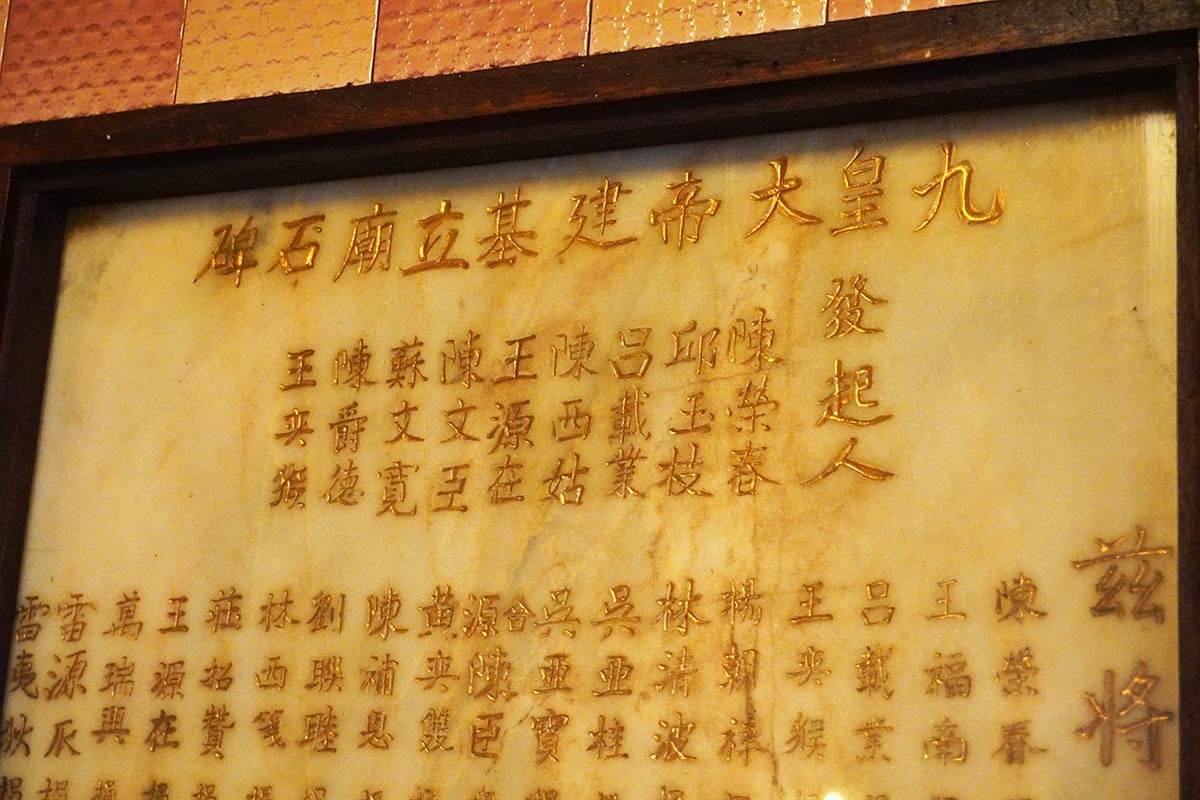 九皇大帝建基立廟石碑
發起人
陳榮春
邱玉枝
呂載業
陳西姑
王源在
陳文
蘇文寬
陳爵德
王奀猴
茲將
陳榮春
王福南
呂載業
王奀猴
楊朝祥
林清波
吳亞桂
吳亞寶
合源陳臣
黃奀雙
陳補恩
劉聯睦
林西
莊招贊
王源在
萬瑞興
雷源辰捐
雷夷狄捐